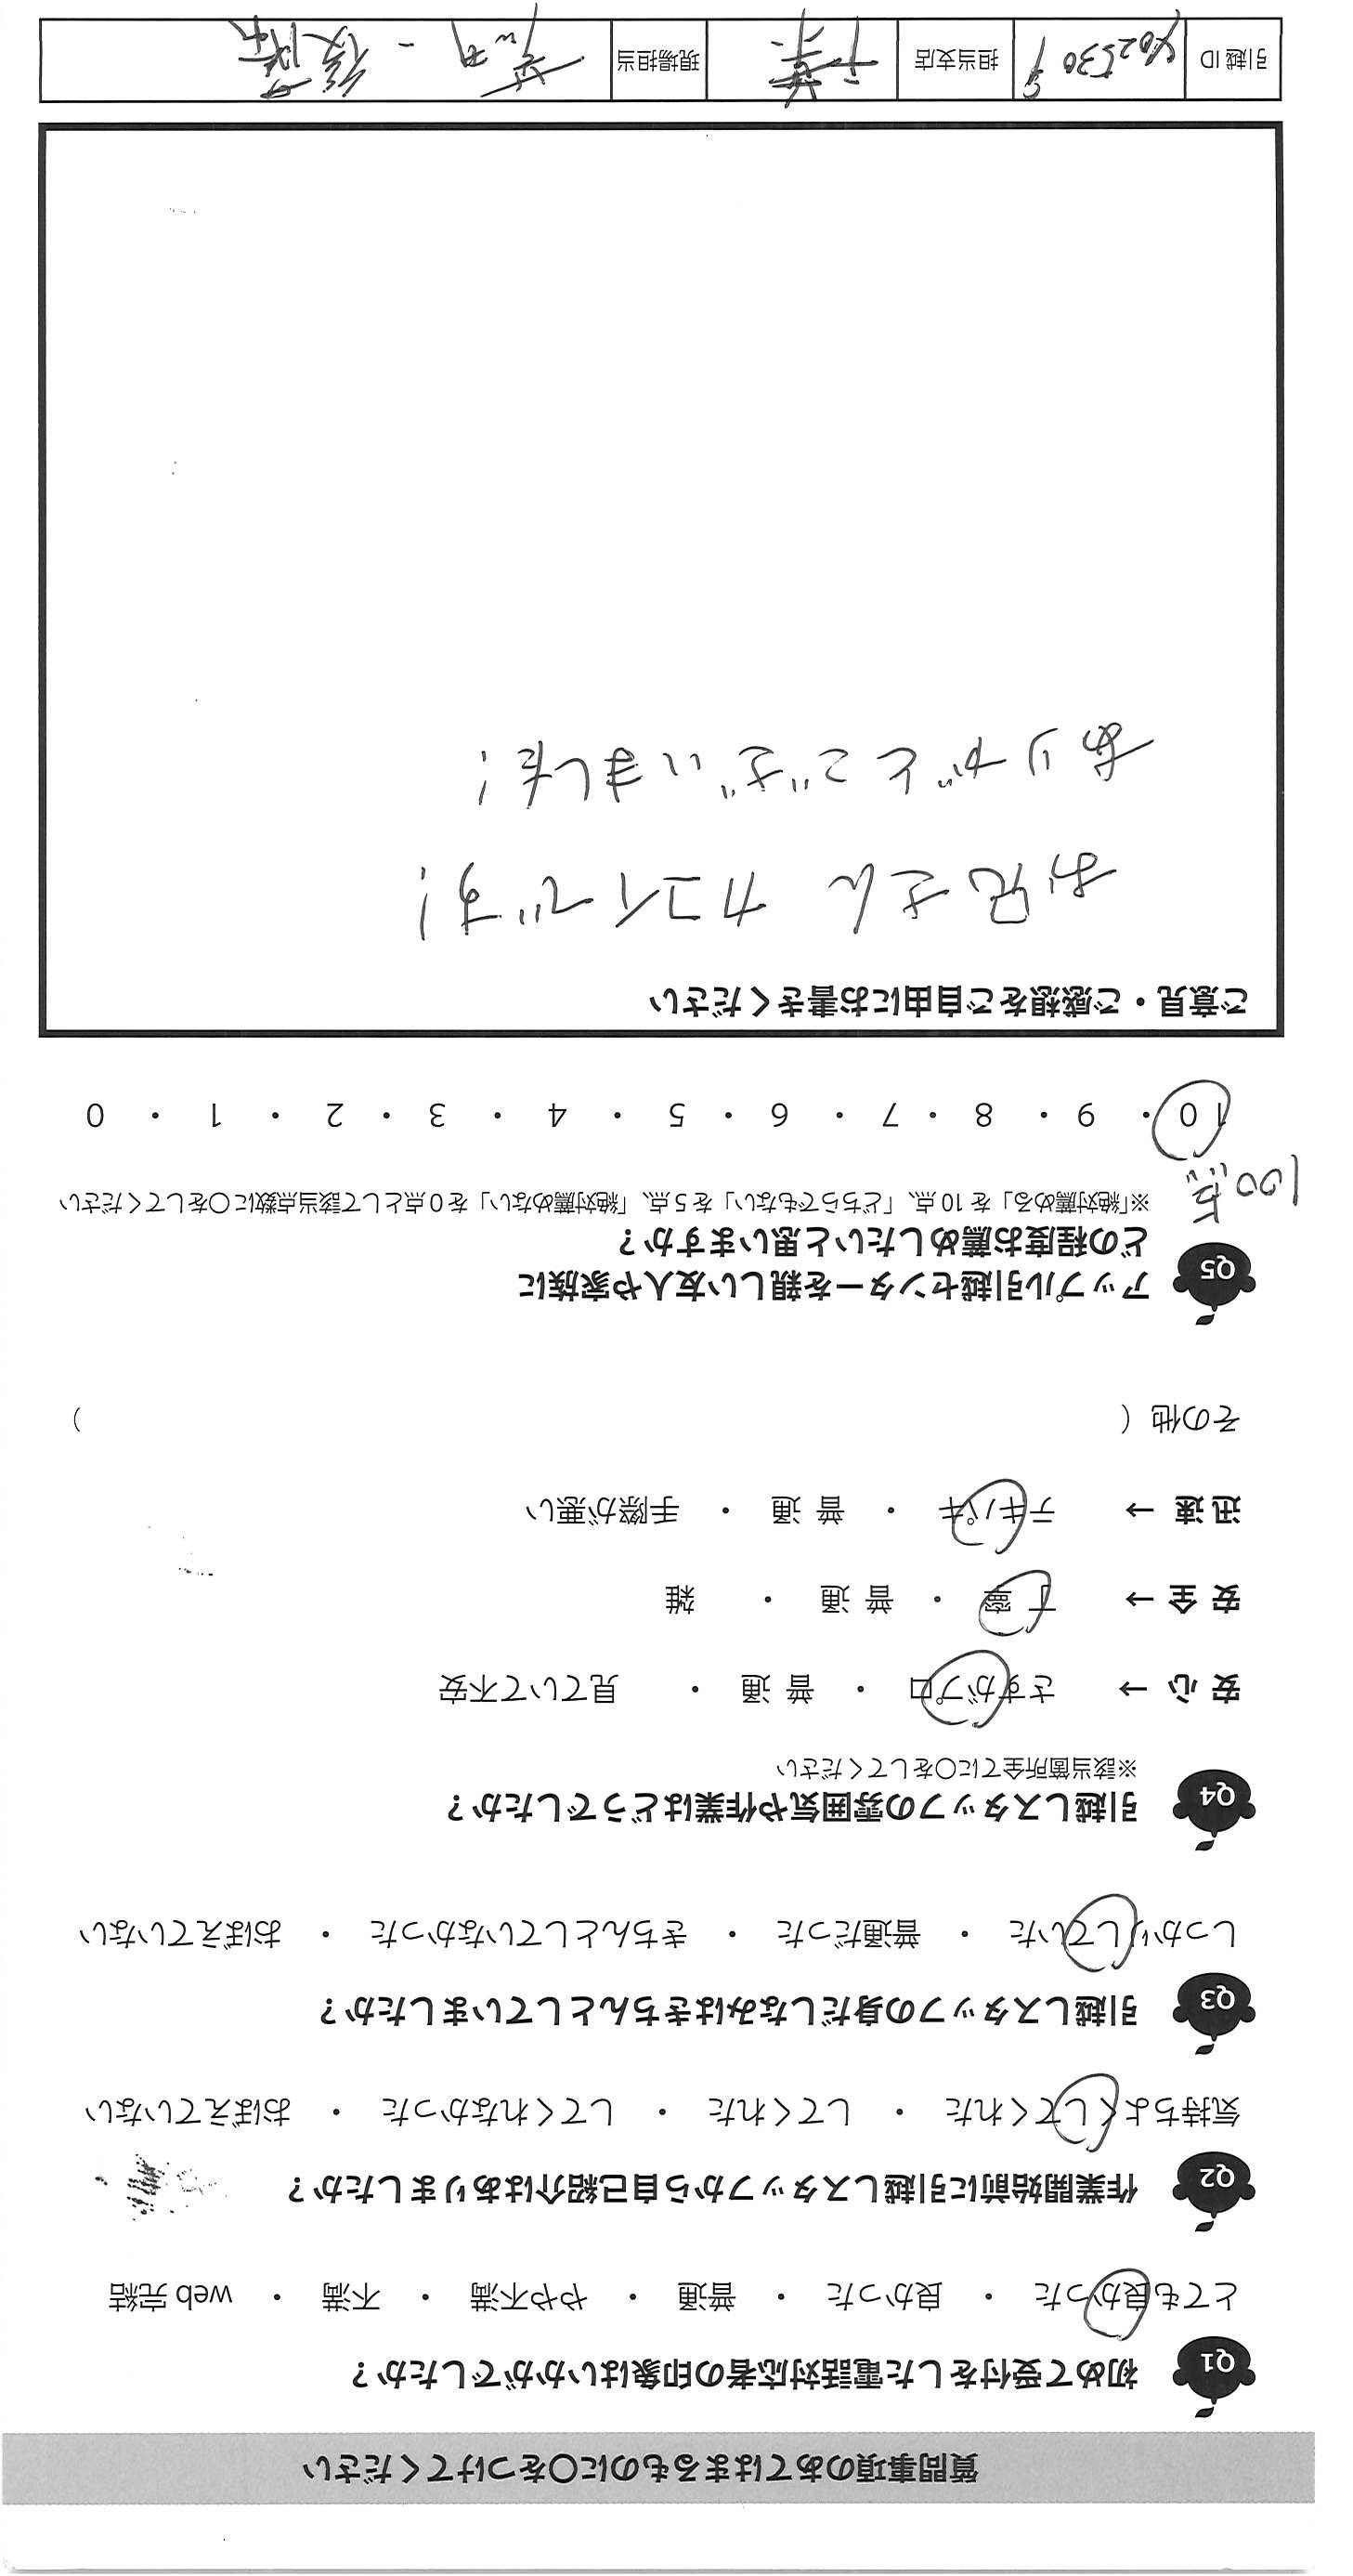 質問事項のあてはまるものに〇をつけてください
Q1 初めて受付をした電話対応者の印象はいかがでしたか？
とても良かった ・ 良かった ・ 普通 ・ やや不満 ・ 不満 ・ web 完結
Q2 作業開始前に引越しスタッフから自己紹介はありましたか？
気持ちよくしてくれた ・ してくれた ・ してくれなかった ・ おぼえていない
Q3 引越しスタッフの身だしなみはきちんとしていましたか？
しっかりしていた ・ 普通だった ・ きちんとしていなかった ・ おぼえていない
Q4 引越しスタッフの雰囲気や作業はどうでしたか？
※該当箇所全てに〇をしてください
安 心 → さすがプロ ・ 普 通 ・ 見ていて不安
安 全 → 丁 寧 ・ 普 通 ・ 雑
迅 速 → テキパキ ・ 普 通 ・ 手際が悪い
その他（ ）
Q5 アップル引越センターを親しい友人や家族に
どの程度お薦めしたいと思いますか？
※「絶対薦める」を 10 点、「どちらでもない」を 5 点、「絶対薦めない」を 0 点として該当点数に〇をしてください
100点
10 ・ 9 ・ 8 ・ 7 ・ 6 ・ 5 ・ 4 ・ 3 ・ 2 ・ 1 ・ 0
ご意見・ご感想をご自由にお書きください
お兄さん カコイイです!
ありがとございました!
引越 ID 担当支店 千葉 現場担当